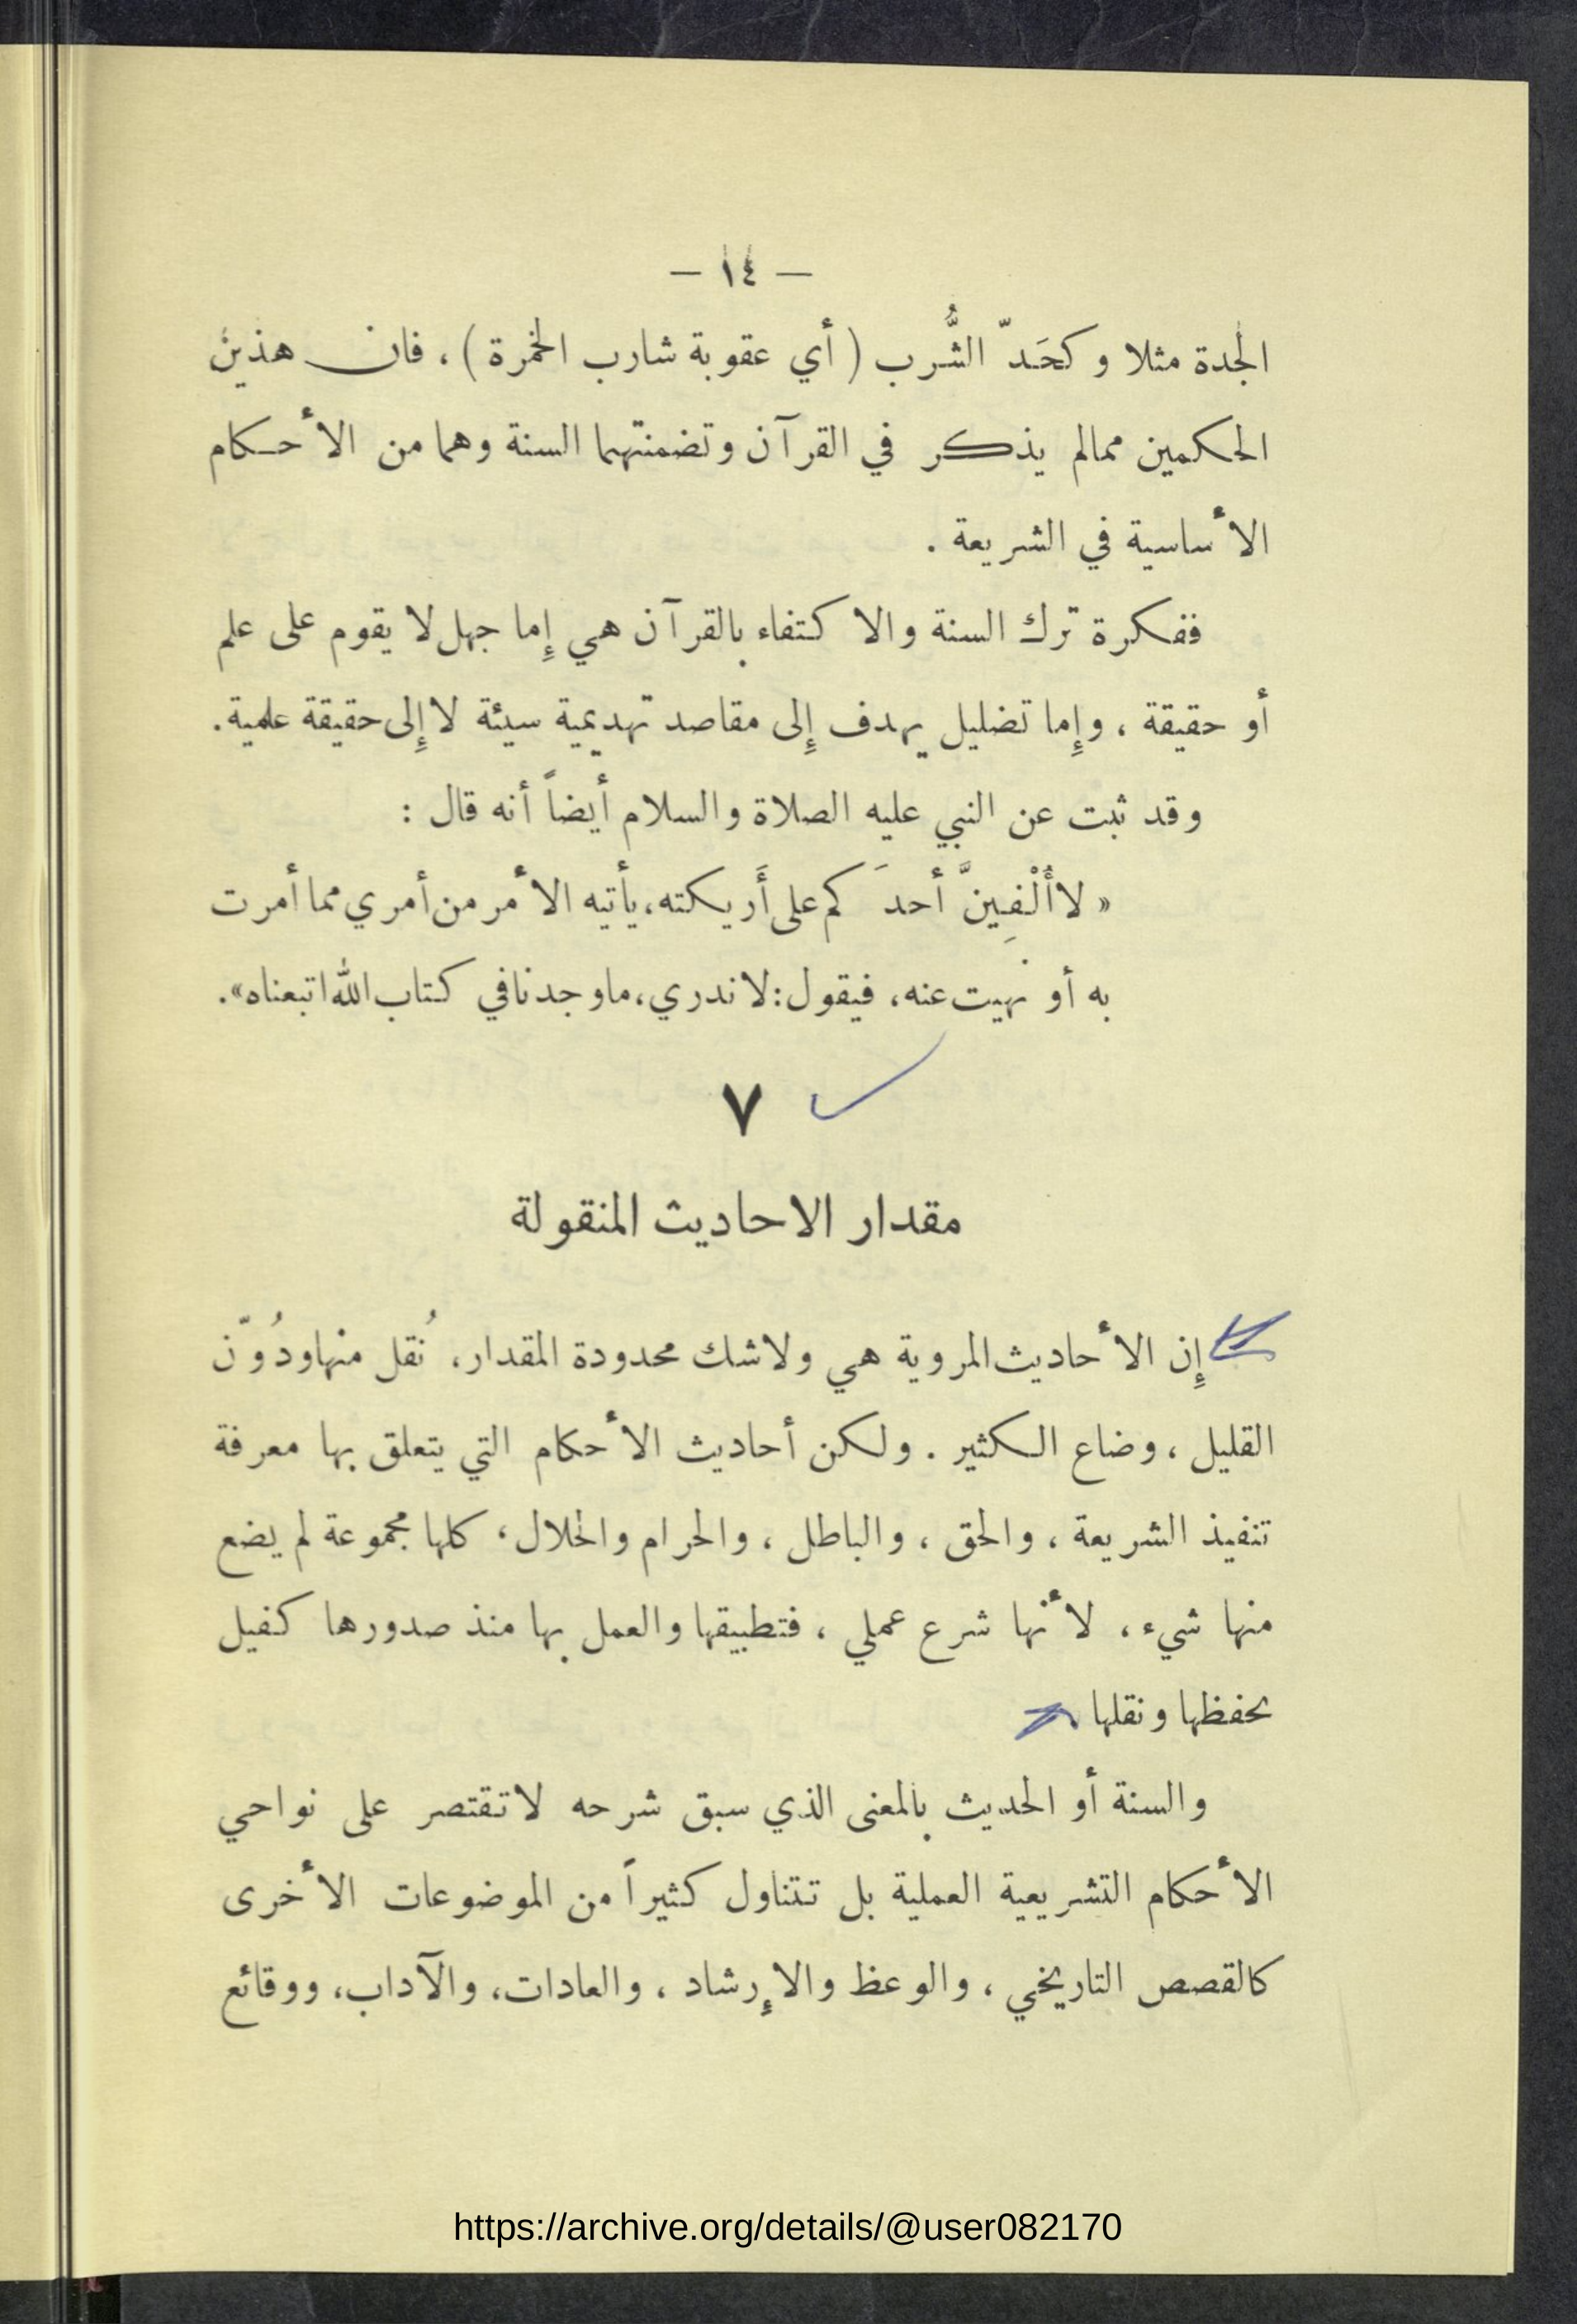 — ١٤ —
الجدة مثلا وكحَدّ الشُّرب ( أي عقوبة شارب الخمرة ) ، فان هذين
الحكمين ممالم يذكر في القرآن وتضمنتهما السنة وهما من الأحكام
الأساسية في الشريعة .
ففكرة ترك السنة والاكتفاء بالقرآن هي إِما جهل لا يقوم على علم
أو حقيقة ، وإِما تضليل يهدف إِلى مقاصد تهديمية سيئة لا إِلى حقيقة علمية .
وقد ثبت عن النبي عليه الصلاة والسلام أيضاً أنه قال :
« لا أُلْفِينَّ أحدَكم على أَريكته ، يأتيه الأمر من أمري مما أمرت
به أو نهيت عنه ، فيقول : لا ندري ، ما وجدنا في كتاب الله اتبعناه » .
٧
مقدار الاحاديث المنقولة
إِن الأحاديث المروية هي ولاشك محدودة المقدار ، نُقل منها ودُوّن
القليل ، وضاع الكثير . ولكن أحاديث الأحكام التي يتعلق بها معرفة
تنفيذ الشريعة ، والحق ، والباطل ، والحرام والحلال ، كلها مجموعة لم يضع
منها شيء ، لأنها شرع عملي ، فتطبيقها والعمل بها منذ صدورها كفيل
بحفظها ونقلها
والسنة أو الحديث بالمعنى الذي سبق شرحه لا تقتصر على نواحي
الأحكام التشريعية العملية بل تتناول كثيراً من الموضوعات الأخرى
كالقصص التاريخي ، والوعظ والإرشاد ، والعادات ، والآداب ، ووقائع
https://archive.org/details/@user082170